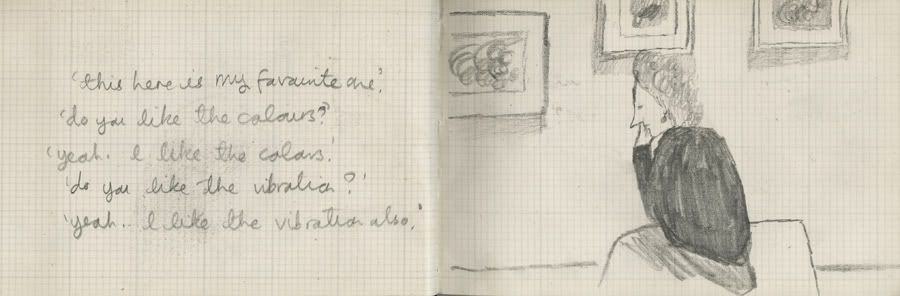 'this here is my favourite one'.
'do you like the colours?'
'yeah. I like the colours.'
'do you like the vibration?'
'yeah.. I like the vibration also.'